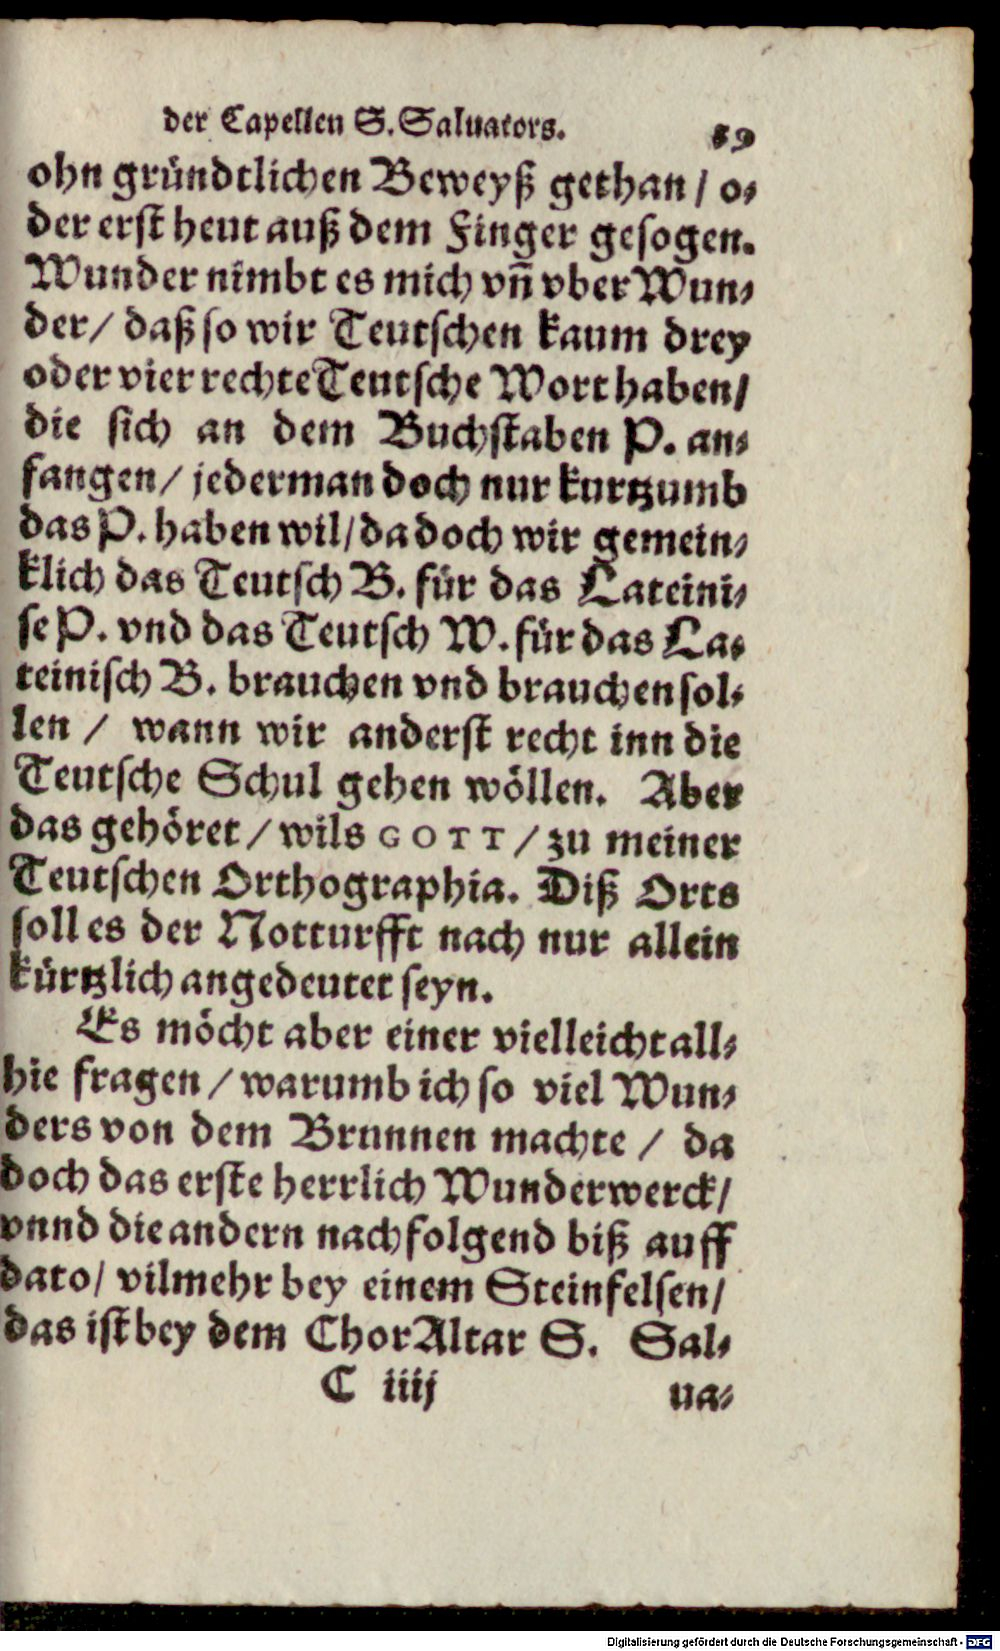 der Capellen S. Saluators. 59
ohn gründtlichen Beweyß gethan / o⸗
der erst heut auß dem Finger gesogen.
Wunder nimbt es mich vñ vber Wun⸗
der / daß so wir Teutschen kaum drey
oder vier rechte Teutsche Wort haben /
die sich an dem Buchstaben P. an⸗
fangen / jederman doch nur kurtzumb
das P. haben wil / da doch wir gemein⸗
klich das Teutsch B. für das Lateini⸗
se P. vnd das Teutsch W. für das La⸗
teinisch B. brauchen vnd brauchen sol⸗
len / wann wir anderst recht inn die
Teutsche Schul gehen wöllen. Aber
das gehöret / wils GOTT / zu meiner
Teutschen Orthographia. Diß Orts
soll es der Notturfft nach nur allein
kürtzlich angedeutet seyn.
Es möcht aber einer vielleicht all⸗
hie fragen / warumb ich so viel Wun⸗
ders von dem Brunnen machte / da
doch das erste herrlich Wunderwerck /
vnnd die andern nachfolgend biß auff
dato / vilmehr bey einem Steinfelsen /
das ist bey dem Chor Altar S. Sal⸗
C iiij ua⸗
Digitalisierung gefördert durch die Deutsche Forschungsgemeinschaft - DFG